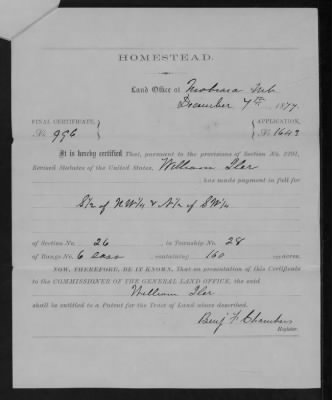 HOMESTEAD.
Land Office at Niobrara Neb.
December 7th 1877.
FINAL CERTIFICATE, APPLICATION,
No. 996 No. 1643
It is hereby certified That, pursuant to the provisions of Section No. 2291,
Revised Statutes of the United States, William Iler
, has made payment in full for
S½ of N.W¼ & N½ of S.W¼
of Section No. 26 in Township No. 28
of Range No. 6 East containing 160 acres.
NOW, THEREFORE, BE IT KNOWN, That on presentation of this Certificate
to the COMMISSIONER OF THE GENERAL LAND OFFICE, the said
William Iler
shall be entitled to a Patent for the Tract of Land above described.
Benj F. Chambers
Register.